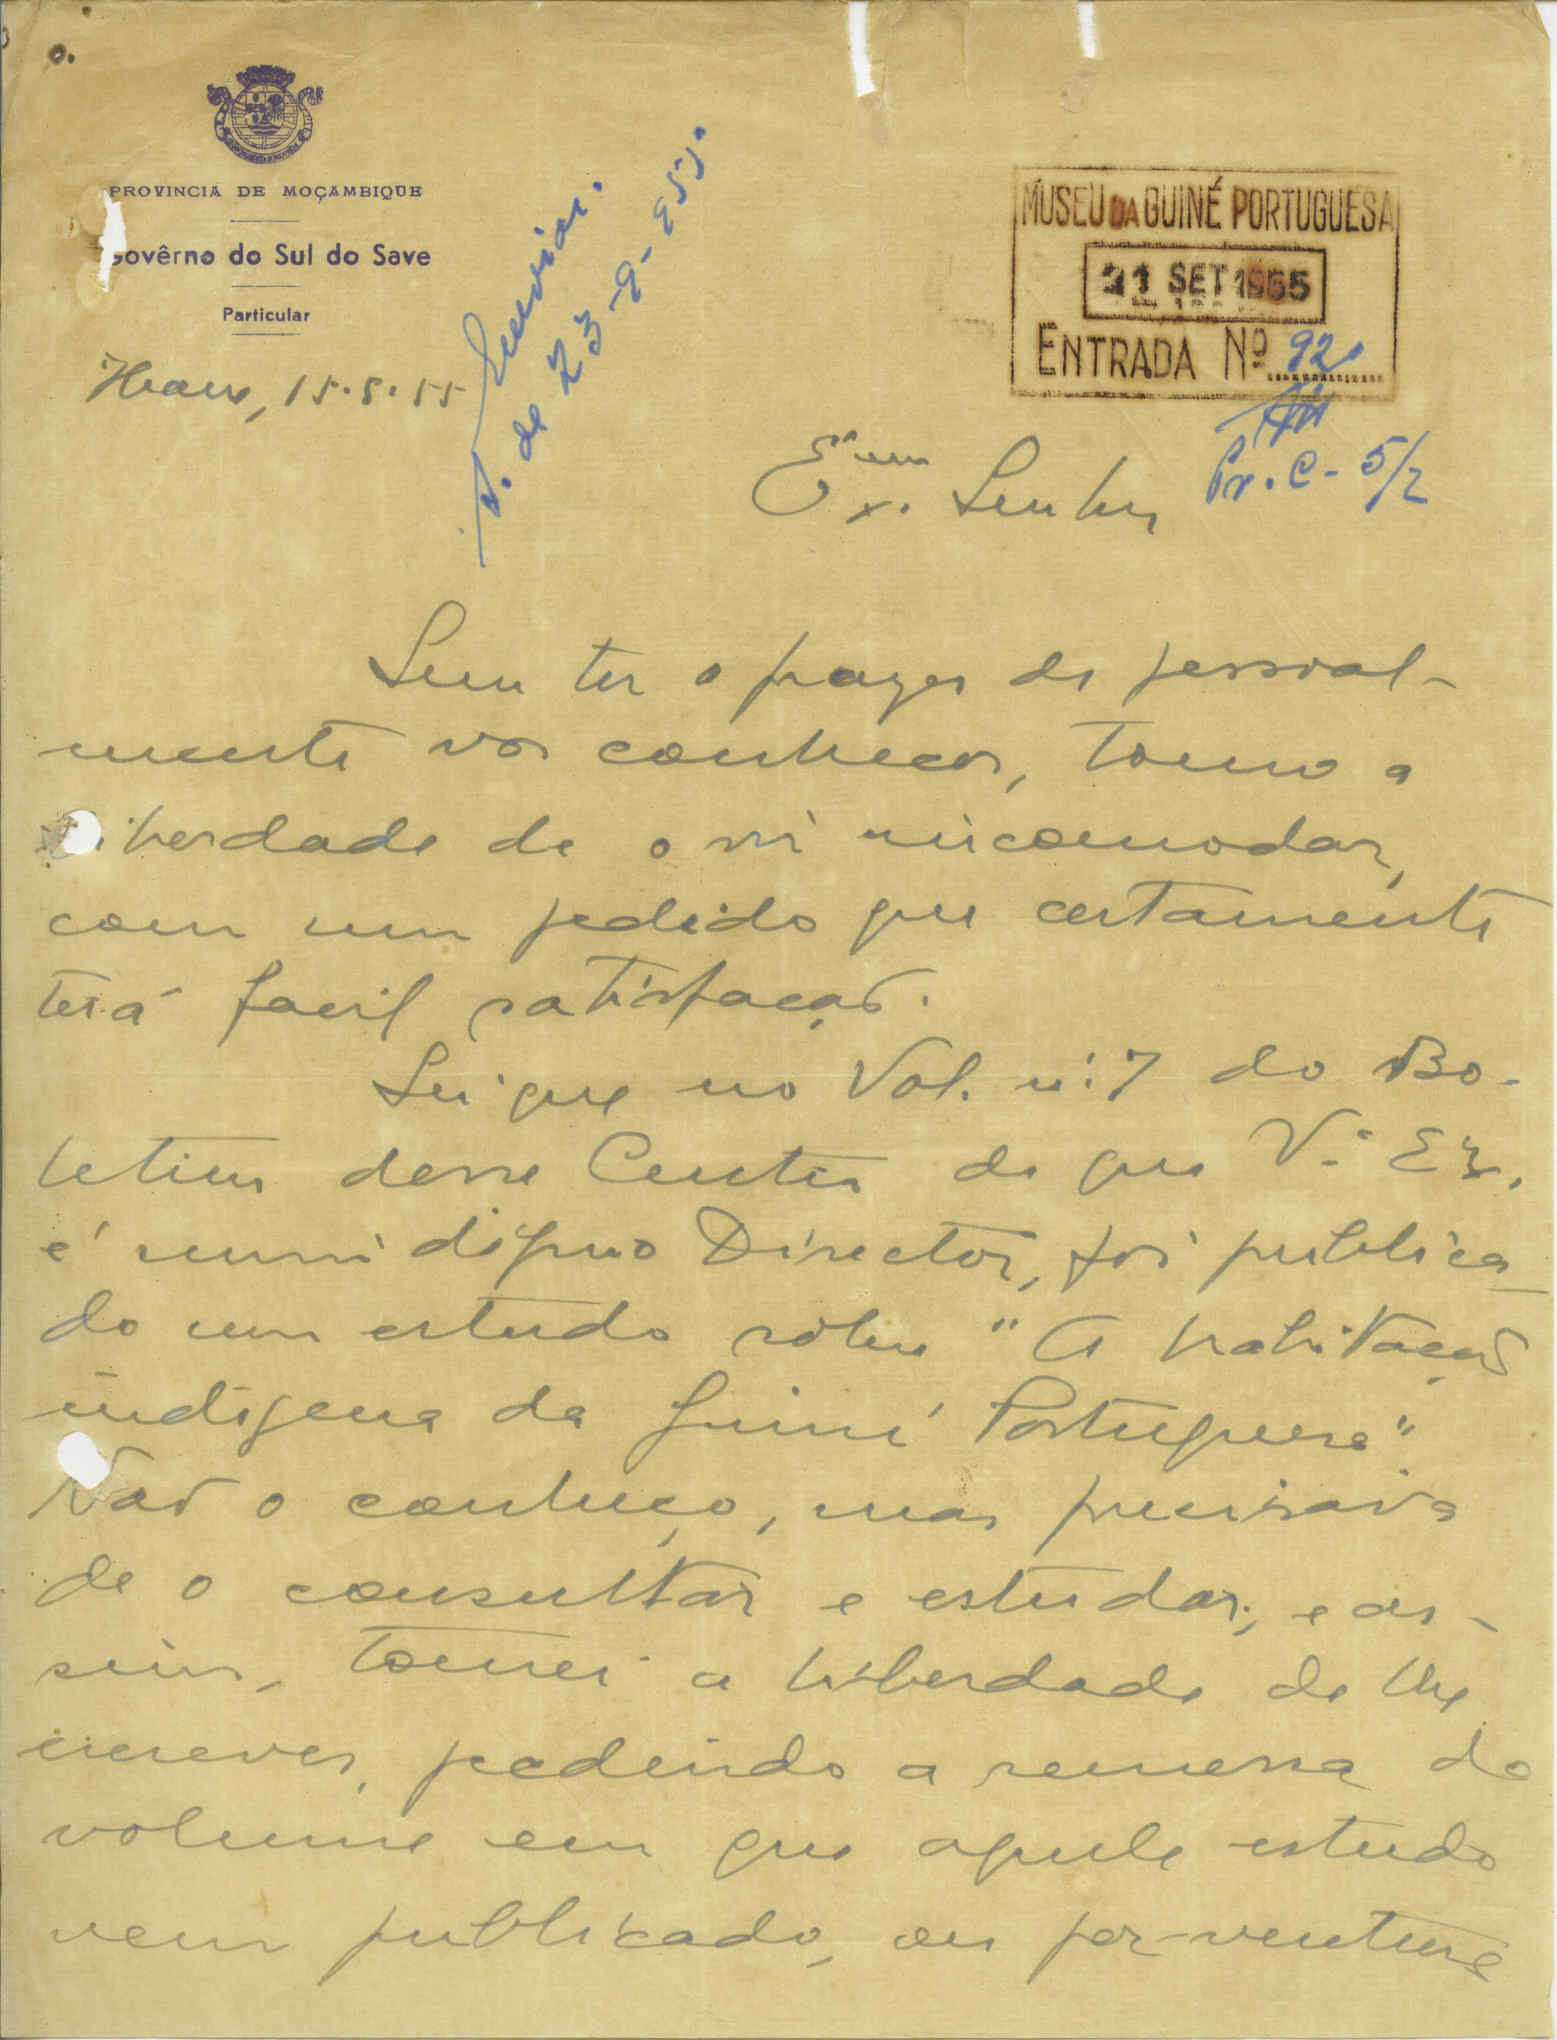 PROVINCIA DE MOÇAMBIQUE
Govêrno do Sul do Save
Particular
15.8.55
Enviar.
23-9-955.
MUSEU DA GUINÉ PORTUGUESA
21 SET 1955
ENTRADA Nº 920
Pr. C - 5/2
Exmo. Senhor
Sem ter o prazer de pessoal-
mente vos conhecer, tomo a
liberdade de o vir incomodar,
com um pedido que certamente
terá facil satisfação.
Sei que no Vol. nº 7 do Bo-
letim desse Centro de que V.ª Ex.
é mui digno Director, foi publica-
do um estudo sôbre "A habitação
indigena da Guiné Portuguesa".
Não o conheço, mas precisava
de o consultar e estudar, e as-
sim, tomei a liberdade de lhe
escrever, pedindo a remessa do
volume em que aquele estudo
vem publicado, ou por-ventura